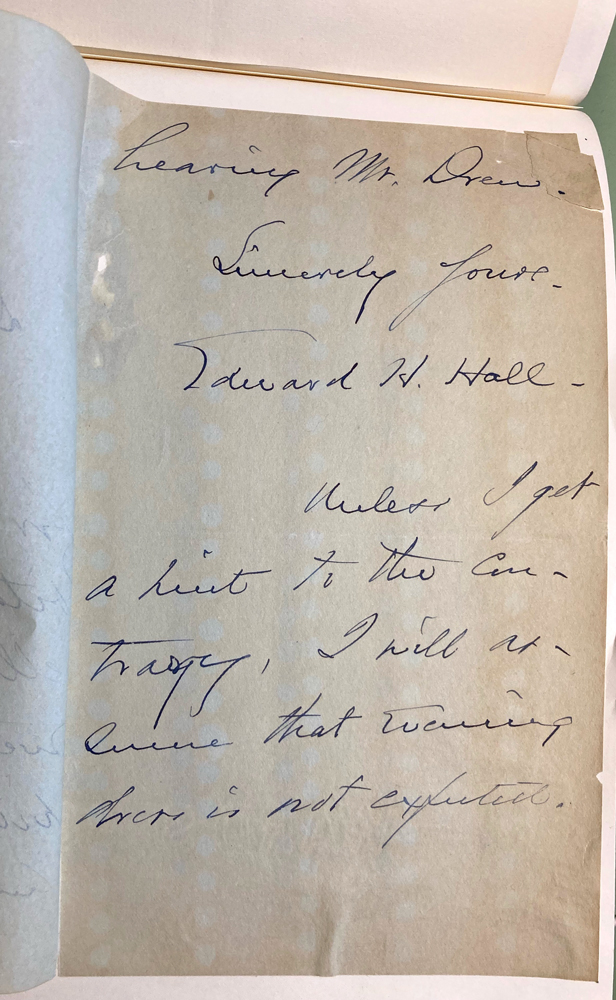 hearing Mr. Drew.
Sincerely Yours.
Edward H. Hall -
Unless I get
a hint to the con-
trary, I will as-
sume that evening
dress is not expected.